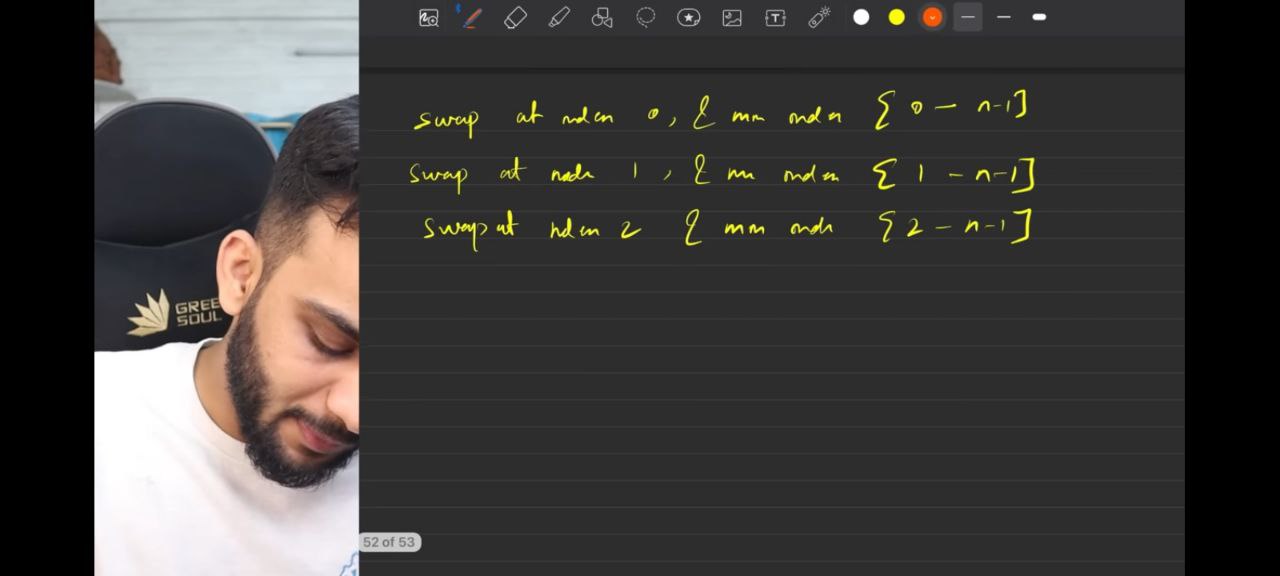 GREE
SOUL
swap at index 0, & min index [0 - n-1]
swap at index 1, & min index [1 - n-1]
swap at index 2 & min index [2 - n-1]
52 of 53